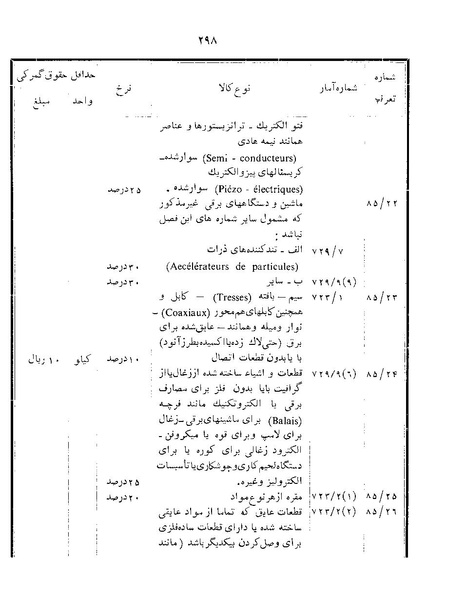 ۲۹۸
شماره تعرفه	شماره آمار	نوع کالا	نرخ	حداقل حقوق گمرکی
واحد	مبلغ
فتو الکتریك ـ ترانزیستورها و عناصر
همانند نیمه هادی
(Semi - conducteurs) سوارشده ـ
کریستالهای پیزوالکتریك
(Piézo - électriques) سوارشده .	۲۵درصد
۸۵/۲۲	ماشین و دستگاههای برقی غیرمذکور
که مشمول سایر شماره های این فصل
نباشد :
۷۲۹/۷	الف ـ تندکننده‌های ذرات
(Aecélérateurs de particules)	۳۰درصد
۷۲۹/۹(۹)	ب ـ سایر	۳۰درصد
۸۵/۲۳	۷۲۳/۱	سیم ـ بافته (Tresses) ـ کابل و
همچنین کابلهای هم‌محور (Coaxiaux) ـ
نوار وسیله وهمانند ـ عایق‌شده برای
برق (حتی‌لاك زده‌یااکسیده‌بطرزآنود)
با یابدون قطعات اتصال	۱۰درصد	کیلو	۱۰ ریال
۸۵/۲۴	۷۲۹/۹(۶)	قطعات و اشیاء ساخته شده اززغال‌یااز
گرافیت بایا بدون فلز برای مصارف
برقی با الکتروتکنیك مانند فرچه
(Balais) برای ماشینهای‌برقی ـ زغال
برای لامپ وبرای قوه یا میکروفن ـ
الکترود زغالی برای کوره یا برای
دستگاه‌لحیم‌کاری‌وجوشکاری‌یاتأسیسات
الکترولیز وغیره.	۲۵درصد
۸۵/۲۵	۷۲۳/۲(۱)	مقره ازهرنوع‌مواد	۲۰درصد
۸۵/۲۶	۷۲۳/۲(۲)	قطعات عایق که تماما از مواد عایقی
ساخته شده یا دارای قطعات ساده‌فلزی
برای وصل‌کردن بیکدیگرباشد (مانند